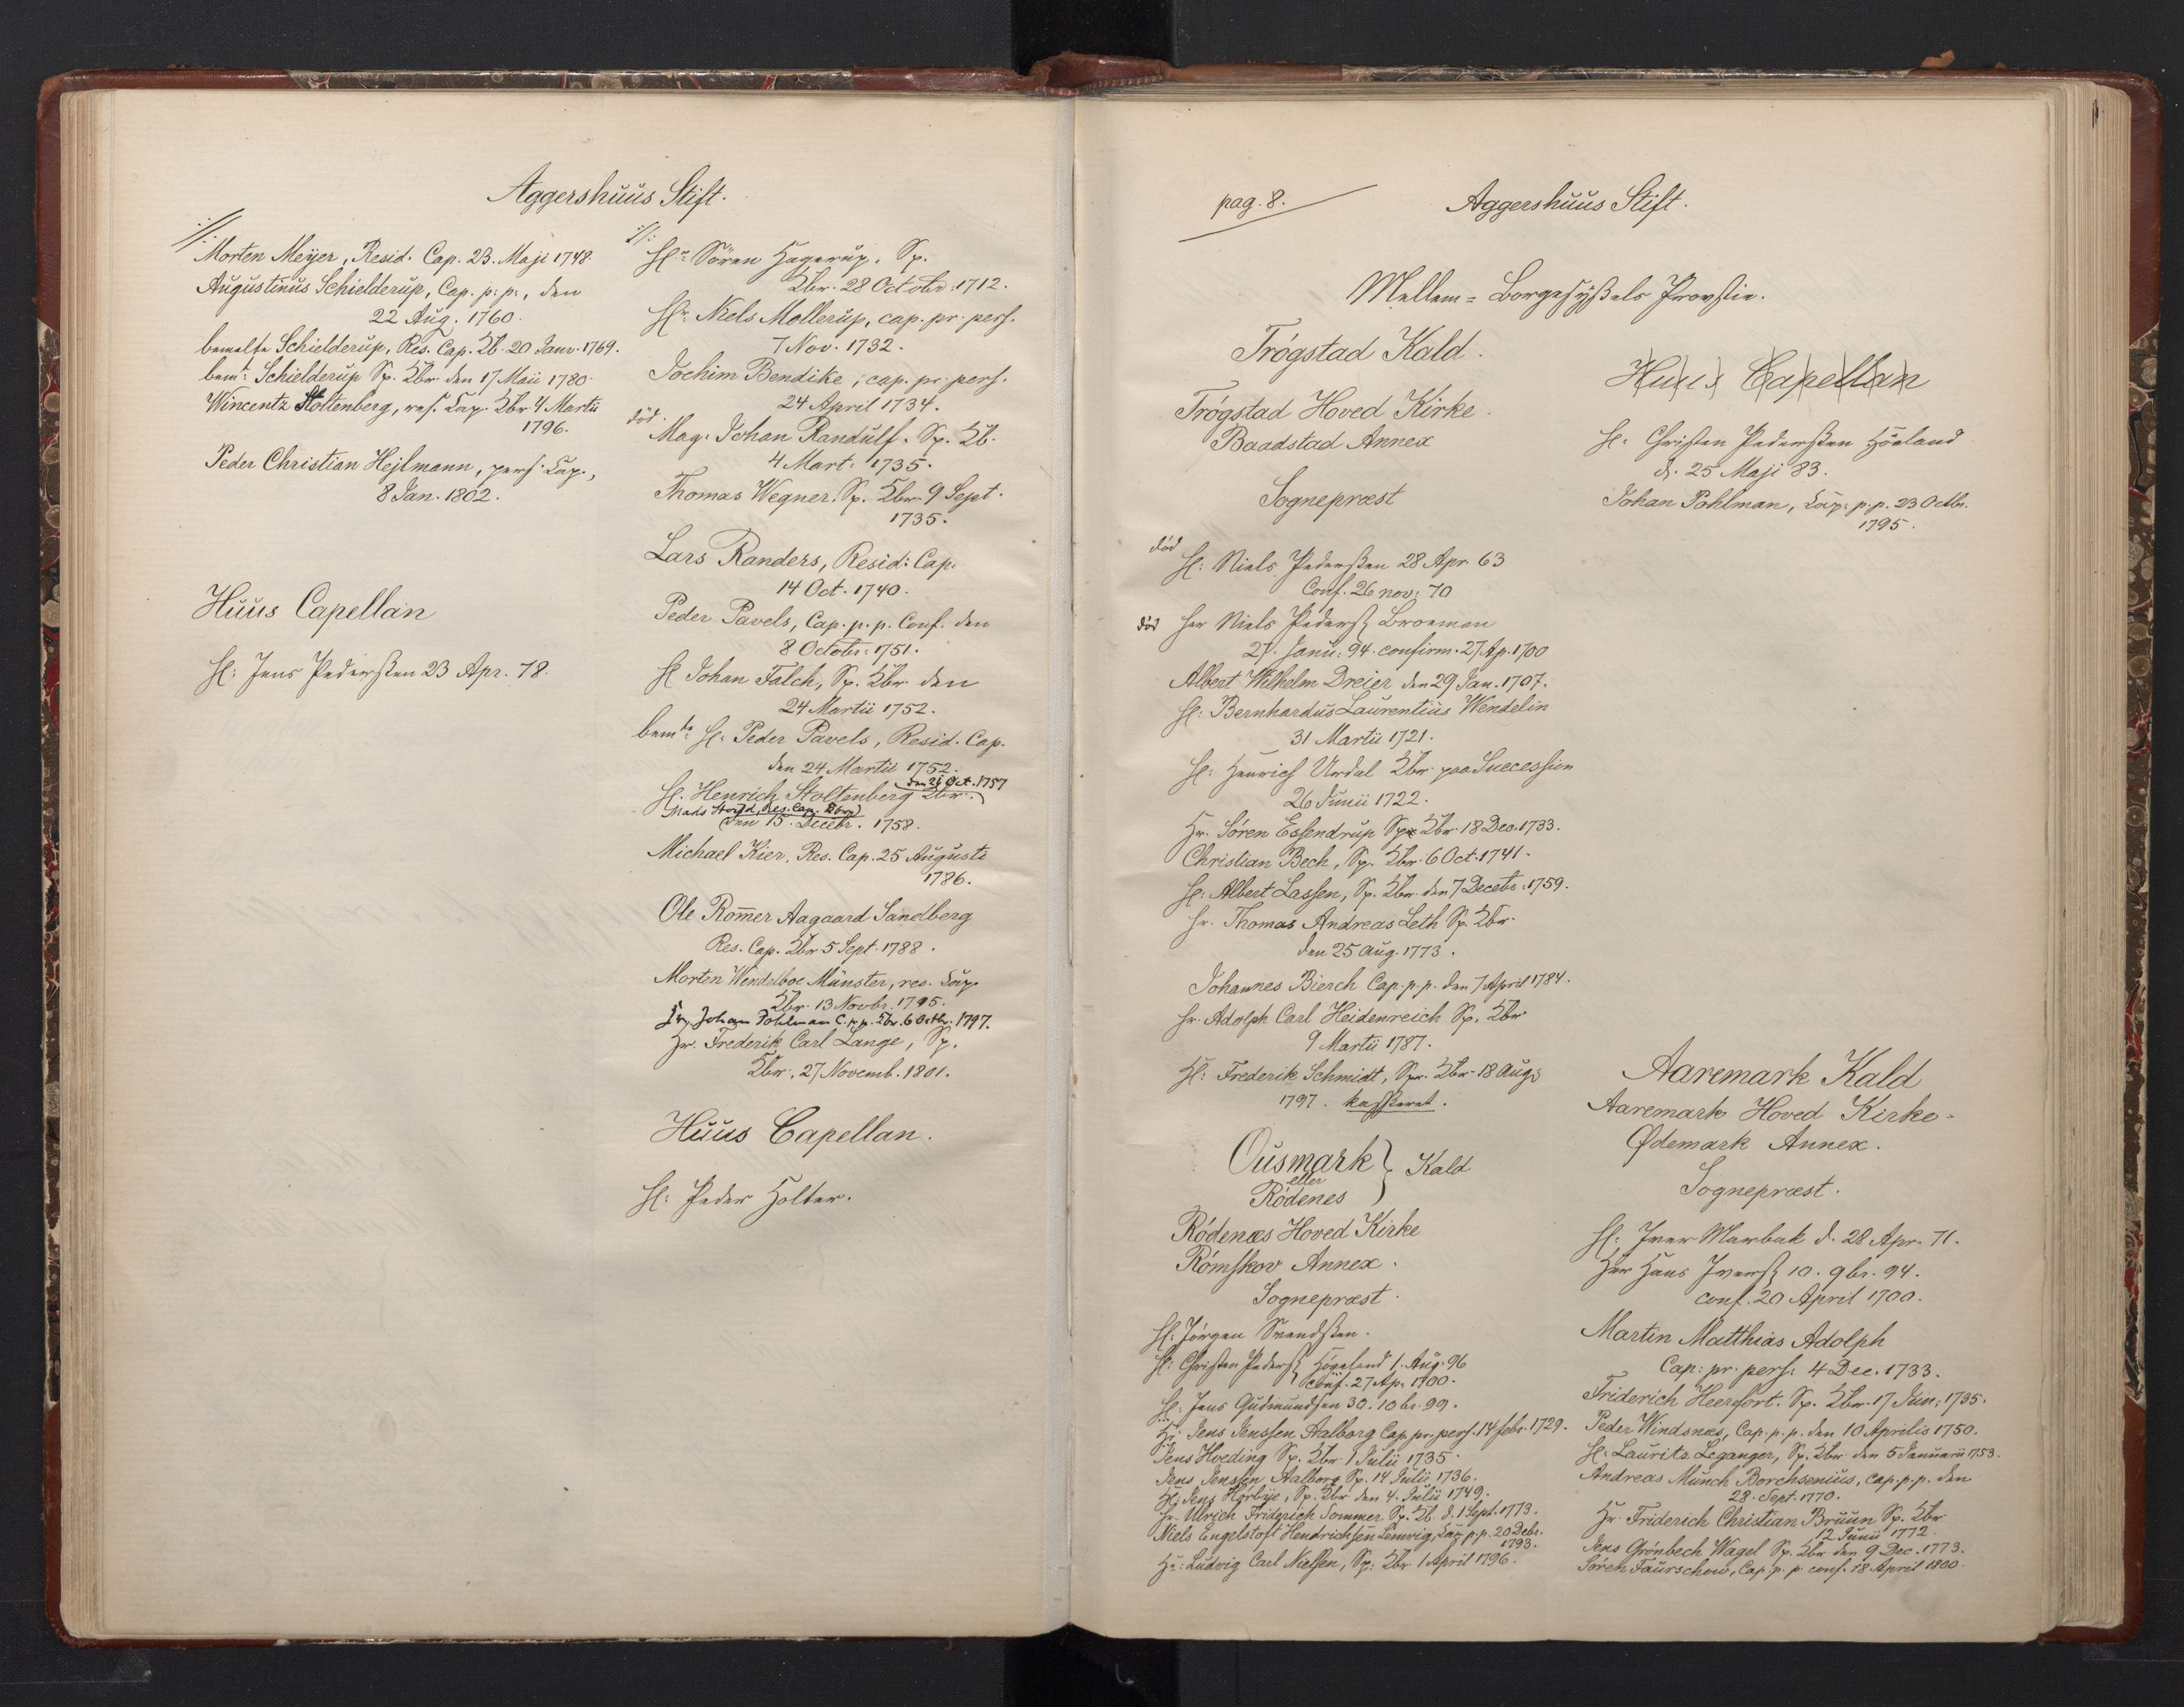 Aggershuus Stift.
./.
Morten Meyer, Resid. Cap. 23. Maji 1748.
Augustinus Schielderup, Cap. p: p:, den
22 Aug. 1760.
bemelte Schielderup, Res. Cap. Kb. 20 Janv. 1769.
bemt: Schielderup Sp. Kbr den 17 Maii 1780.
Wincentz Stoltenberg, res. Cap. Kbr 4 Martii
1796.
Peder Christian Hejlmann, pers. Cap.,
8 Jan. 1802.
Huus Capellan
H: Jens Pedersen 23 Apr. 78.
./.
Hr Sören Hagerup. Sp.
Kbr. 28 Octobr: 1712.
Hr Niels Mollerup, cap. pr. pers.
7 Nov. 1732.
Jochim Bendike, cap. pr. pers.
24 April 1734.
död.
Mag. Johan Randulf. Sp. Kb.
4 Mart. 1735.
Thomas Wegner. Sp. Kbr 9 Sept.
1735.
Lars Randers, Resid: Cap.
14 Oct. 1740.
Peder Pavels, Cap. p. p. Conf. den
8 Octobr: 1751.
H Johan Falch, Sp. Kbr den
24 Martii 1752.
bemte H: Peder Pavels, Resid. Cap.
den 24 Martii 1752.
den 21 Oct. 1757
H. Henrich Stoltenberg Kbr.
Mads Res. Cap. Kbr
den 15. Decebr. 1758.
Michael Kier, Res. Cap. 25 Augusti
1786.
Ole Rom̅er Aagaard Sandberg
Res. Cap. Kbr 5 Sept. 1788.
Morten Wendelboe Münster, res. Cap.
Kbr. 13 Novbr. 1795.
Johan Pohlman C. p. p. Kbr. 6 Octbr. 1797.
Hr. Frederik Carl Lange, Sp.
Kbr. 27 Novemb. 1801.
Huus Capellan.
H: Peder Holter.
pag. 8.
Aggershuus Stift.
Mellem = Borgesyssels Provstie.
Trógstad Kald.
Trógstad Hoved Kirke.
Baadstad Annex
Sognepræst
död
H: Niels Pedersen 28 Apr. 63
Conf. 26 nov: 70
död Her Niels Peders: Broeman
27. Janu: 94. confirm. 27 Ap. 1700
Albert Wilhelm Dreier den 29 Jan. 1707.
H: Bernhardus Laurentius Wendelin
31 Martii 1721.
H: Henrich Urdal Kbr paa Succession
26 Junii 1722.
Hr. Sóren Essendrup Sp. Kbr 18 Dec. 1733.
Christian Bech, Sp. Kbr. 6 Oct. 1741.
H: Albert Lassen, Sp. Kbr. den 7 Decebr: 1759.
Hr. Thomas Andreas Leth Sp. Kbr.
den 25 Aug. 1773.
Johannes Bierch Cap. p. p. den 7 April 1784.
Hr. Adolph Carl Heidenreich Sp. Kbr
9 Martii 1787.
H: Frederik Schmidt, Spr. Kbr. 18 Aug.
1797. kasseret.
Ousmark
eller
Ródenes } Kald
Ródenæs Hoved Kirke
Rómskov Annex.
Sognepræst.
H: Jórgen Svendsen.
H: Christen Peders: Högeland 1. Aug. 96
conf. 27 Ap. 1700.
H: Jens Gudmundsen 30. 10br. 99.
Hr. Jens Jenssen Aalborg Cap. pr. pers. 14 febr. 1729.
Jens Hveding Sp. Kbr. 1 Julii 1735.
Jens Jenssen Aalborg Sp. 14 Julii 1736.
H: Jens Hórbye, Sp. Kbr den 4. Julii 1749.
Hr. Ulrich Friderich Sommer Sp. Kb. d. 1 Sept. 1773.
Niels Engelstoft Hendrichsen Lemvig, Cap. p. p. 20 Debr.
1793.
Hr: Ludvig Carl Nielsen, Sp. Kbr 1 April 1796.
Huus Capellan
H: Christen Pedersen Höeland
d. 25 Maji 83.
Johan Pohlman, Cap. p. p. 23 Octbr.
1795.
Aaremark Kald
Aaremark Hoved Kirke.
Ødemark Annex.
Sognepræst.
H: Iver Marbak d. 28 Apr. 71.
Her Hans Ivers: 10. 9br. 94.
conf. 20 April 1700.
Martin Matthias Adolph
Cap: pr. pers: 4 Dec. 1733.
Friderich Heersfort. Sp. Kbr. 17 Jun: 1735.
Peder Windsnæs, Cap. p. p. den 10 Aprilis 1750.
H: Lauritz Leganger, Sp. Kbr den 5 Januarii 1753.
Andreas Munch Borchsenius, cap. p. p. den
28. Sept. 1770.
Hr. Friderich Christian Bruun Sp. Kbr
12 Junii 1772.
Jens Grónbech Wagel Sp. Kbr den 9 Dec. 1773.
Sóren Faurschou, Cap. p. p. conf. 18 April 1800.